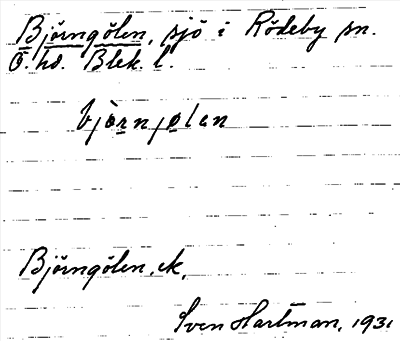 Björngölen, sjö i Rödeby sn.
Ö. hd. Blek. l.
bjòrnjølen
Björngölen, ek,
Sven Hartman, 1931